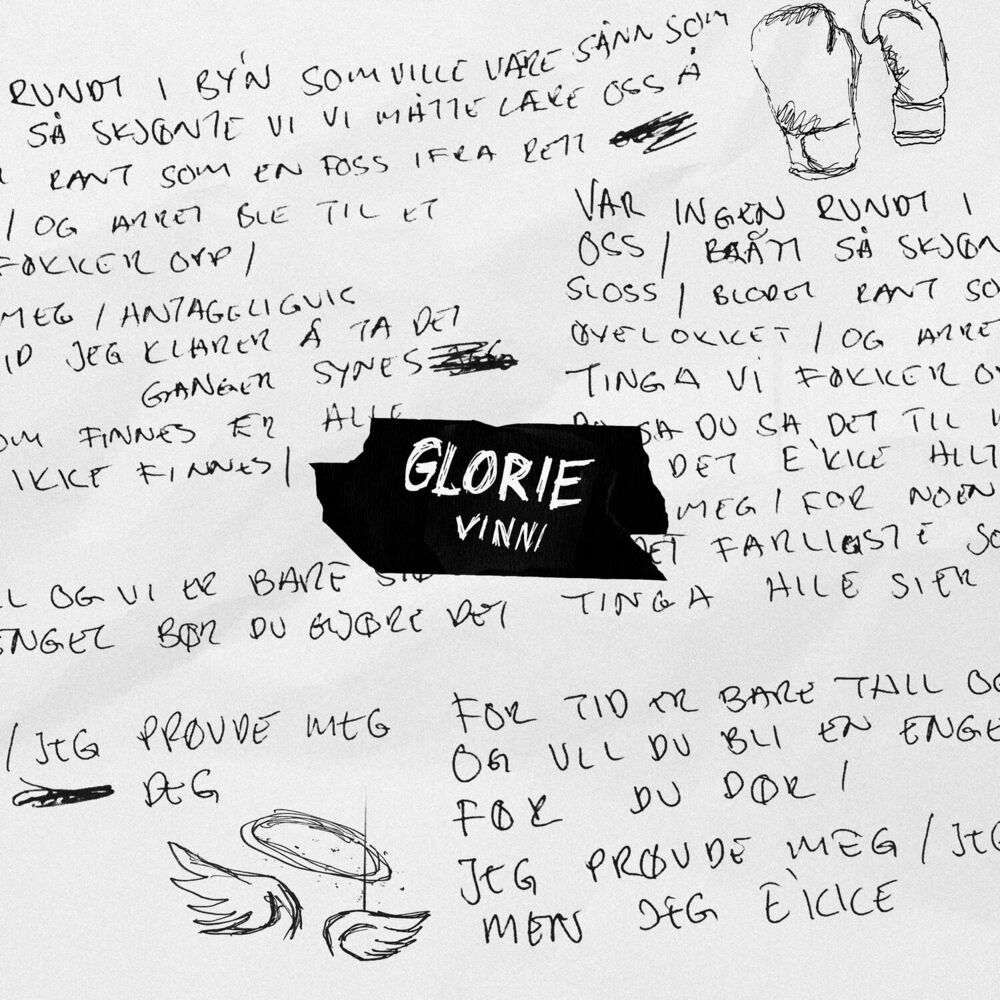 RUNDT I BY'N SOM VILLE VÆRE SÅNN SOM
SÅ SKJØNTE VI VI MÅTTE LÆRE OSS Å
RANT SOM EN FOSS IFRA RETT
/ OG ARRET BLE TIL ET
FØKKER OPP /
MEG / ANTAGELIGVIS
JEG KLARER Å TA DET
GANGER SYNES
FINNES ER ALLE
IKKE FINNES /
OG VI ER BARE
ENGEL BØR DU GJØRE DET
/ JEG PRØVDE MEG
DEG
VAR INGEN RUNDT I
OSS / BÅTT SÅ SKJØN
SLOSS / BLODET RANT SO
ØYELOKKET / OG ARRET
TINGA VI FØKKER O
SA DU SA DET TIL
DET E'KKE ALLT
MEG / FOR NOEN
DET FARLIGSTE SO
TINGA HILE SIER
GLORIE
VINNI
FOR TID ER BARE TALL OG
OG VLL DU BLI EN ENGE
FØR DU DØR /
JEG PRØVDE MEG / JEG
MEN JEG E'KKE